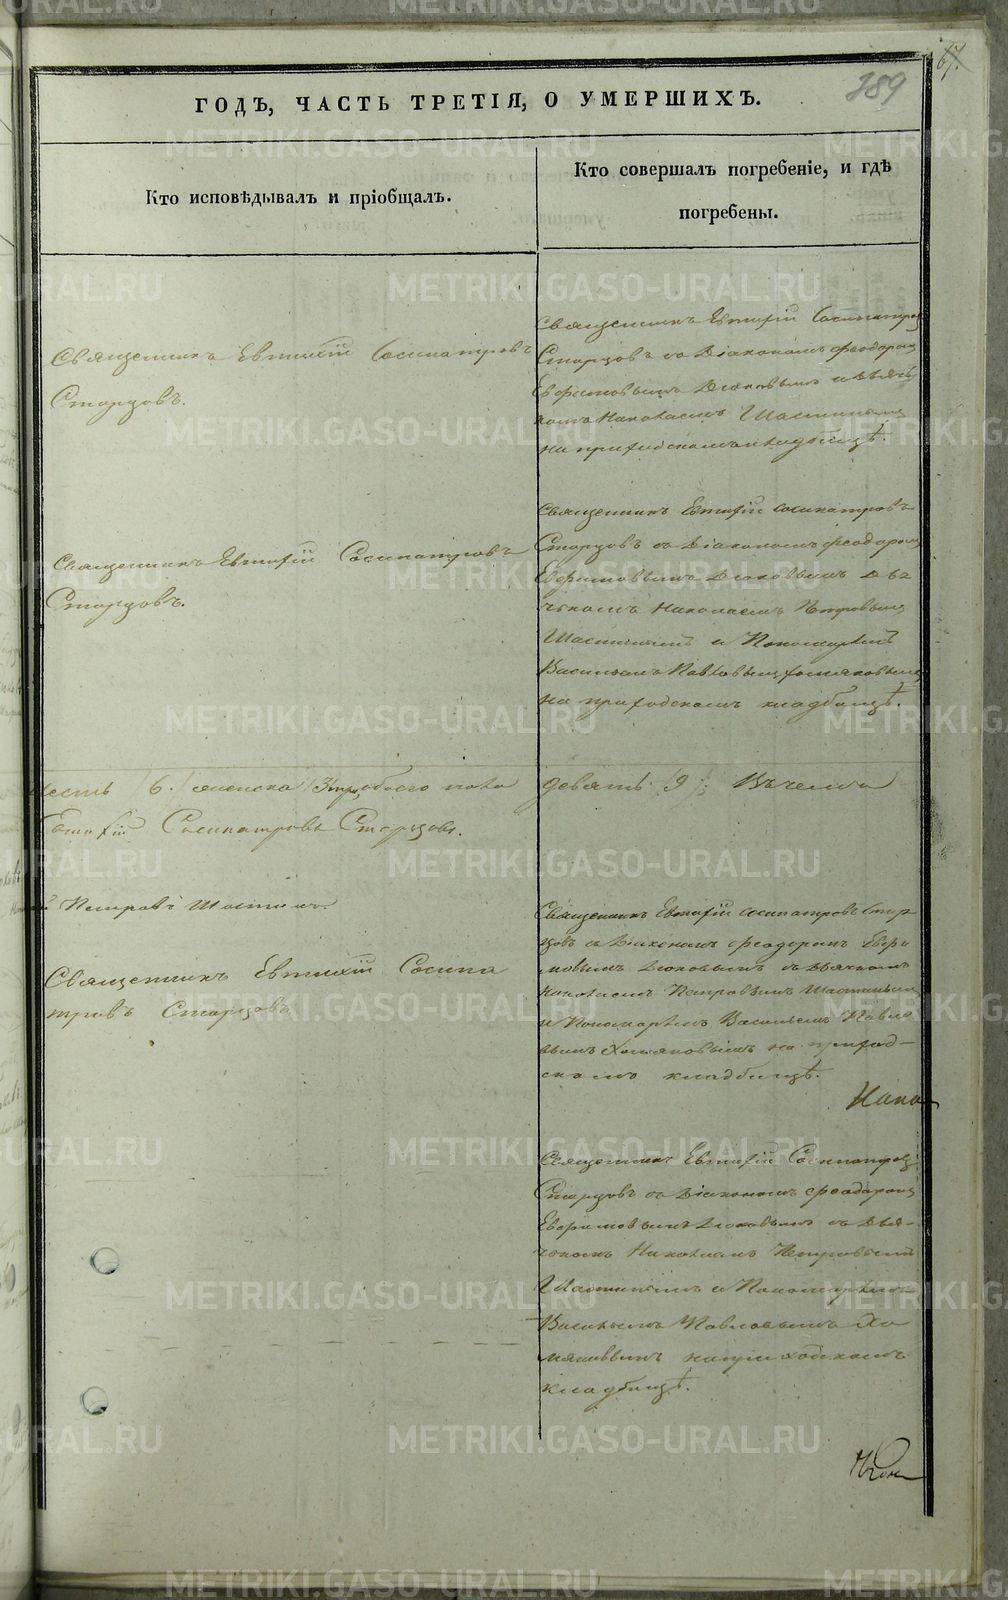 67.
389
ГОДЪ, ЧАСТЬ ТРЕТІЯ, О УМЕРШИХЪ.
Кто исповѣдывалъ и пріобщалъ.
Кто совершалъ погребеніе, и гдѣ
погребены.
Священникъ Евтихій Сосипатровъ
Старцовъ.
Священникъ Евтихій Сосипатров
Старцовъ съ Діакономъ Феодоромъ
на приходскомъ кладбищѣ.
Священникъ Евтихій Сосипатровъ
Старцовъ.
Священникъ Евтихій Сосипатровъ
Старцовъ съ Діакономъ Феодоромъ
Николаемъ Петровымъ
Шастинымъ и Пономаремъ
Василіемъ Павловымъ Хомяковымъ
на приходскомъ кладбищѣ.
6. женска 3 обоего пола
девять 9
Евтихій Сосипатровъ Старцовъ.
Петровъ Шастинъ.
Священникъ Евтихій Сосипа
тровъ Старцовъ
Священникъ Евтихій Сосипатровъ Стар
цовъ съ Діакономъ Феодоромъ
съ Дьячкомъ
Николаемъ Петровымъ Шастинымъ
и Пономаремъ Василіемъ Павло
вымъ Хомяковымъ на приход-
скомъ кладбищѣ.
Священникъ Евтихій Сосипатровъ
Старцовъ съ Діакономъ Феодоромъ
съ Дья-
чкомъ Николаемъ Петровымъ
Шастинымъ и Пономаремъ
Василіемъ Павловымъ Хо
мяковымъ на приходскомъ
кладбищѣ.
METRIKI.GASO-URAL.RU